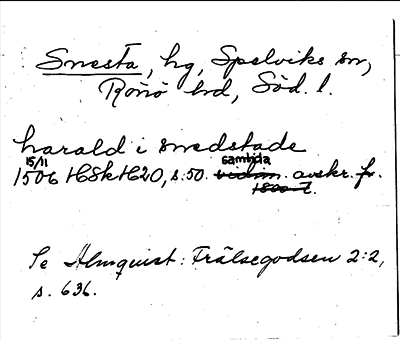 Smesta, hg, Spelviks sn,
Rönö hd, Söd. l.
harald i smedstade
15/11 samtida
1506 HSH H20, s. 50. vidim. avskr. fr.
1800-t.
Se Almquist: Frälsegodsen 2:2,
s. 636.